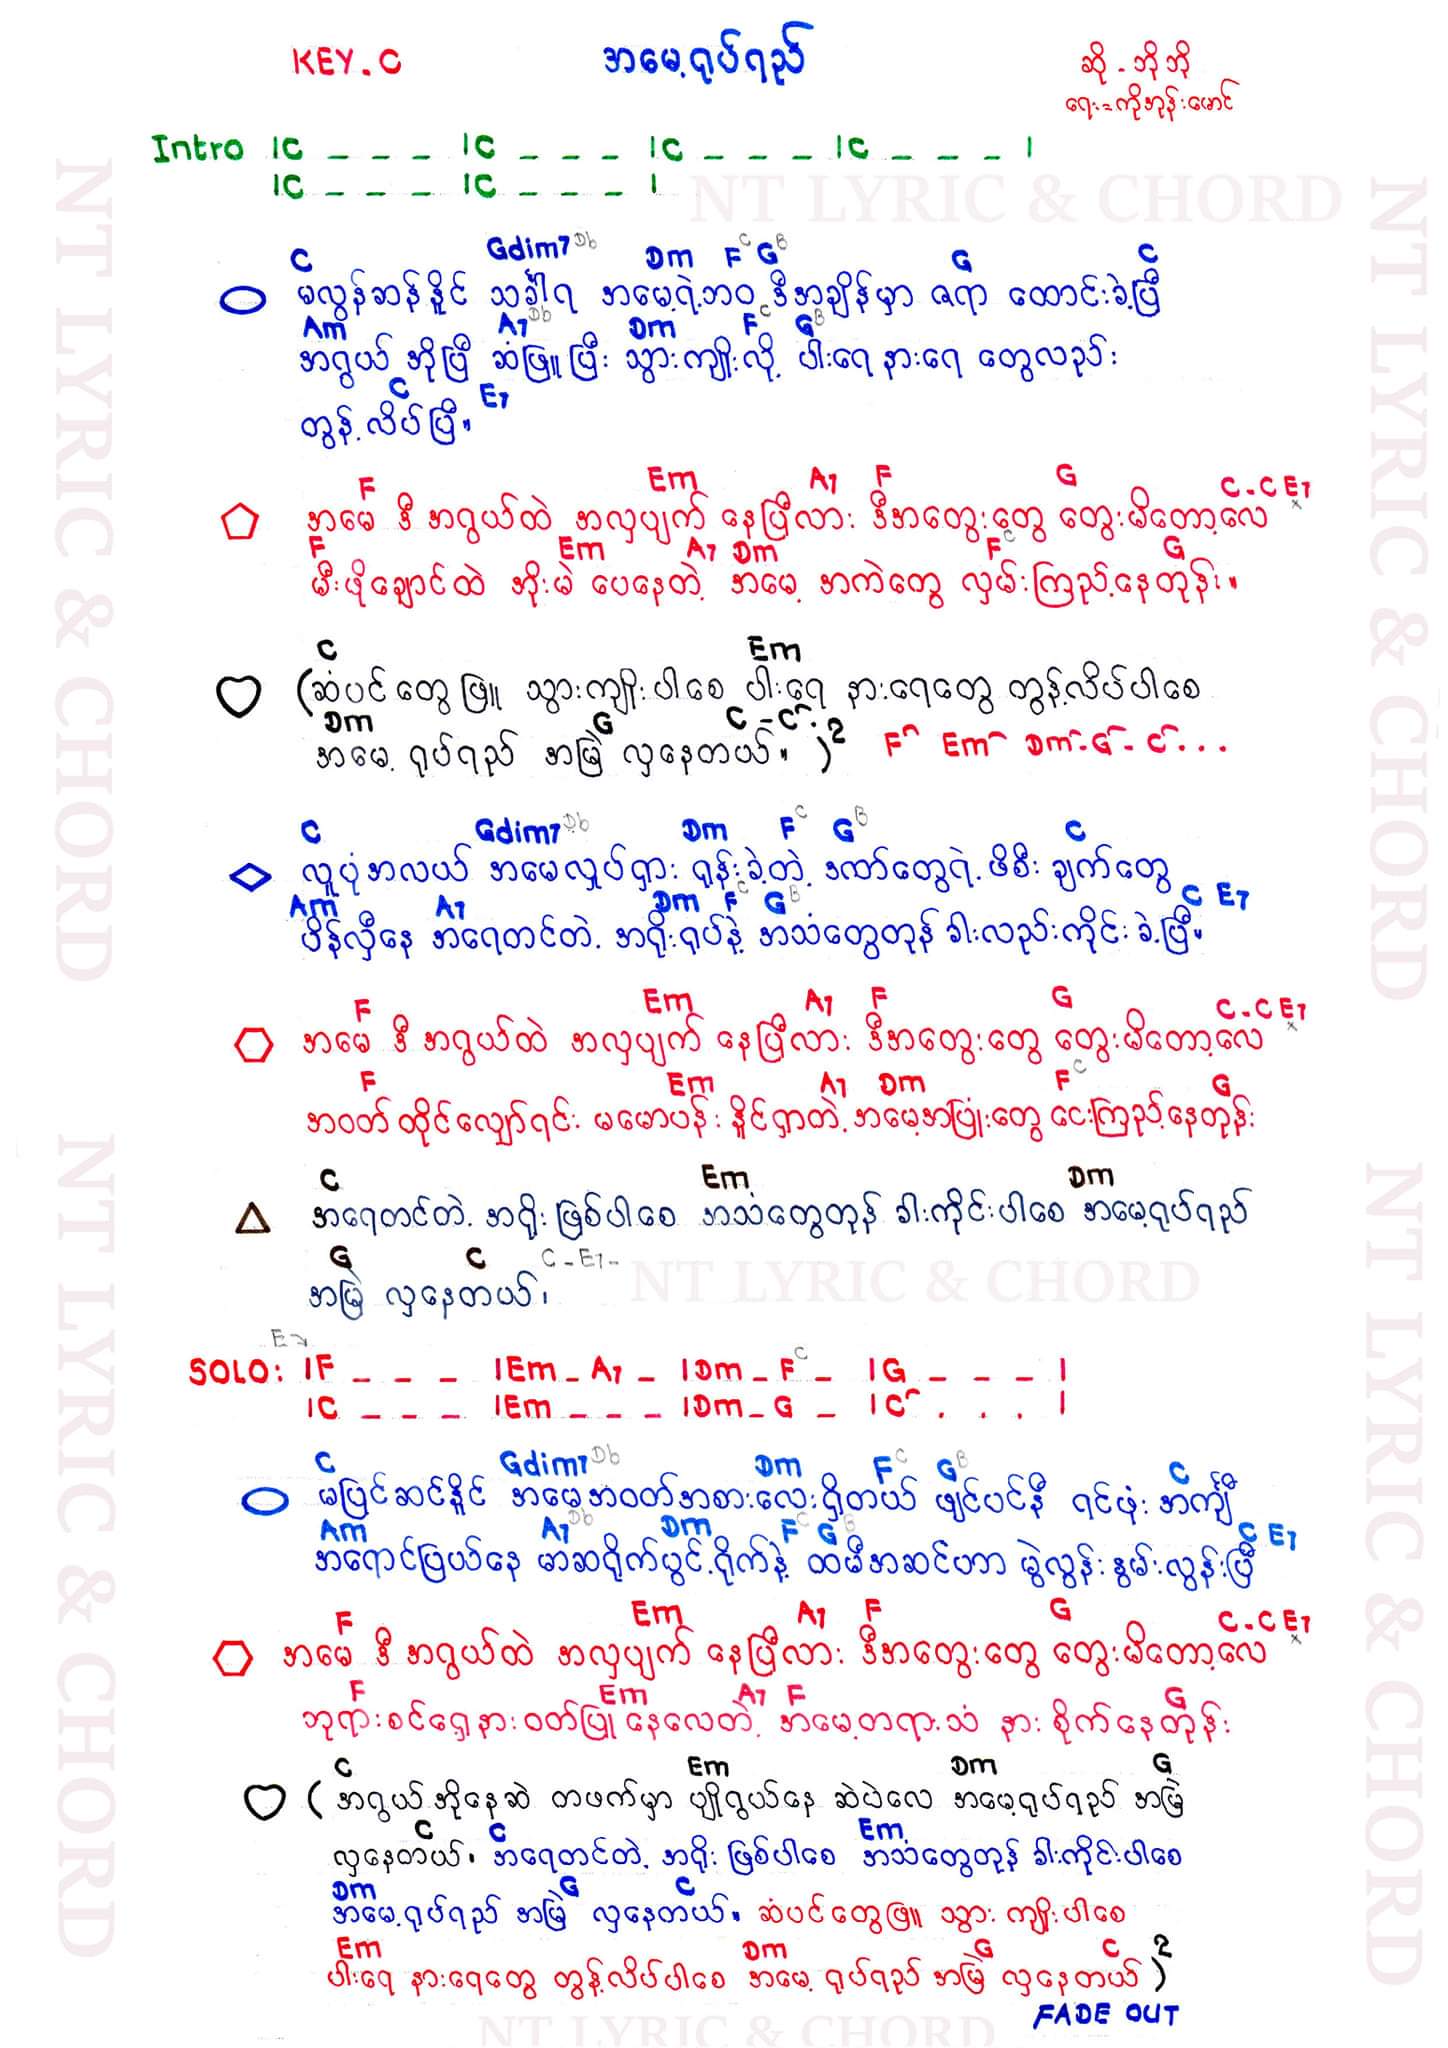 KEY.C အမေ့ရုပ်ရည် ဆို - ဘိုဘို
ရေး = ကိုဘုန်းမောင်
Intro |C _ _ _ |C _ _ _ |C _ _ _ |C _ _ _ |
|C _ _ _ |C _ _ _ |
NT LYRIC & CHORD
C Gdim7 Db Dm F C G B G C
မလွန်ဆန်နိူင် သင်္ခါရ အမေ့ရဲ့ဘဝ ဒီအချိန်မှာ ဇရာ ထောင်းခဲ့ပြီ
Am A7 Db Dm F C G B
အရွယ် အိုပြီ ဆံဖြူပြီး သွားကျိုးလို့ ပါးရေနားရေ တွေလည်း
C E7
တွန့်လိပ်ပြီ။
F Em A7 F G C-C E7 x
အမေ ဒီအရွယ်ထဲ အလှပျက် နေပြီလား ဒီအတွေးတွေ တွေးမိတော့လေ
F Em A7 Dm F C G
မီးဖိုချောင်ထဲ အိုးမဲ ပေနေတဲ့ အမေ့ အကဲတွေ လှမ်းကြည့်နေတုန်း။
C Em
(ဆံပင်တွေဖြူ သွားကျိုးပါစေ ပါးရေ နားရေတွေ တွန့်လိပ်ပါစေ
Dm G C - C
အမေ့ ရုပ်ရည် အမြဲ လှနေတယ်။ )2 F Em Dm-G- C . . .
C Gdim7 Db Dm F C G B C
လူပုံအလယ် အမေလှုပ်ရှား ရုန်းခဲ့တဲ့ ဒဏ်တွေရဲ့ ဖိစီး ချက်တွေ
Am A7 Dm F C G B C E7
ပိန်လှီနေ အရေတင်တဲ့ အရိုးရုပ်နဲ့ အသံတွေတုန် ခါးလည်းကိုင်း ခဲ့ပြီ။
F Em A7 F G C-C E7 x
အမေ ဒီအရွယ်ထဲ အလှပျက် နေပြီလား ဒီအတွေးတွေ တွေးမိတော့လေ
F Em A7 Dm F C G
အဝတ်ထိုင်လျှော်ရင်း မမောပန်း နိူင်ရှာတဲ့ အမေ့အပြုံးတွေ ငေးကြည့်နေတုန်း
C Em Dm
အရေတင်တဲ့ အရိုးဖြစ်ပါစေ အသံတွေတုန် ခါးကိုင်းပါစေ အမေ့ရုပ်ရည်
G C C - E7 -
အမြဲ လှနေတယ်၊
NT LYRIC & CHORD
E7
SOLO: |F _ _ _ |Em _ A7 _ |Dm _ F C _ |G _ _ _ |
|C _ _ _ |Em _ _ _ |Dm _ G _ |C . . . |
C Gdim7 Db Dm F C G B C
မပြင်ဆင်နိူင် အမေ့အဝတ်အစားလေးရှိတယ် ဖျင်ပင်နီ ရင်ဖုံး အင်္ကျီ
Am A7 Db Dm F C G B C E7
အရောင်ပြယ်နေ မာဆရိုက်ပွင့်ရိုက်နဲ့ ထမီအဆင်ဟာ မွဲလွန်းနွမ်းလွန်းပြီ
F Em A7 F G C-C E7 x
အမေ ဒီအရွယ်ထဲ အလှပျက် နေပြီလား ဒီအတွေးတွေ တွေးမိတော့လေ
F Em A7 F G
ဘုရားစင်ရှေ့နားဝတ်ပြု နေလေတဲ့ အမေ့တရားသံ နား စိုက်နေတုန်း
C Em Dm G
( အရွယ်အိုနေဆဲ တဖက်မှာ ပျိုရွယ်နေ ဆဲပဲလေ အမေ့ရုပ်ရည် အမြဲ
C C Em
လှနေတယ်၊ အရေတင်တဲ့ အရိုးဖြစ်ပါစေ အသံတွေတုန် ခါးကိုင်းပါစေ
Dm G C
အမေ့ရုပ်ရည် အမြဲ လှနေတယ်။ ဆံပင်တွေဖြူ သွား ကျိုးပါစေ
Em Dm G C
ပါးရေ နားရေတွေ တွန့်လိပ်ပါစေ အမေ့ ရုပ်ရည် အမြဲ လှနေတယ် )2
FADE OUT
NT LYRIC & CHORD
NT LYRIC & CHORD
NT LYRIC & CHORD
NT LYRIC & CHORD
NT LYRIC & CHORD